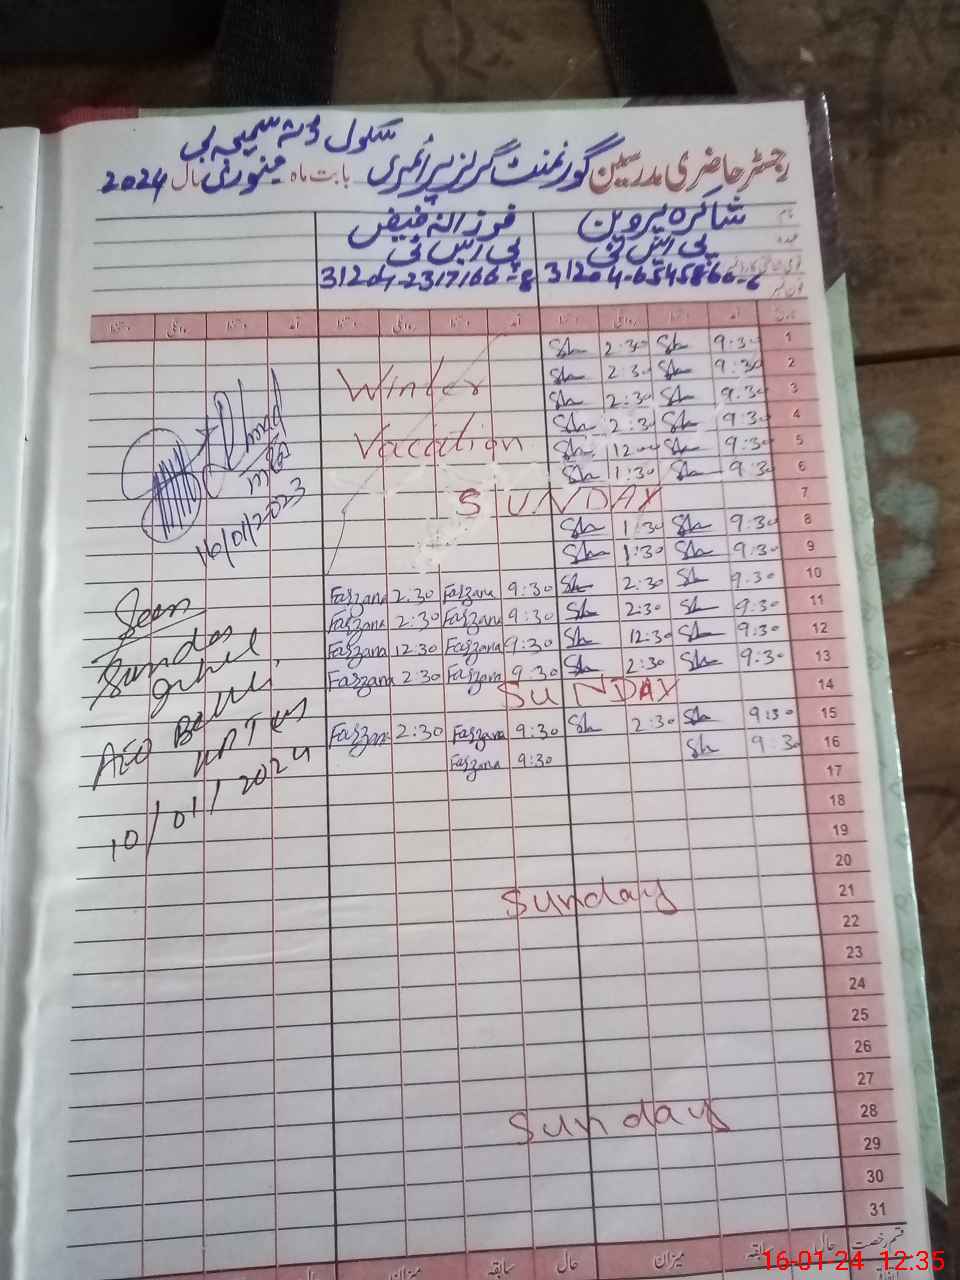 رجسٹر حاضری مدرسین گورنمنٹ گرلز پرائمری سکول
بابت ماہ جنوری سال 2024
نام شاکرہ پروین فرزانہ فیض
عہدہ پی ایس ٹی پی ایس ٹی
31204-6545860-6 31204-2317166-8
تاریخ آمد دستخط روانگی دستخط آمد دستخط روانگی دستخط آمد دستخط روانگی دستخط
1 9:30 Sh 2:30 Sh
2 9:30 Sh 2:30 Sh Winter
3 9:30 Sh 2:30 Sh
4 9:30 Sh 2:30 Sh Vacation
5 9:30 Sh 12:00 Sh
6 9:30 Sh 1:30 Sh
7 SUNDAY
8 9:30 Sh 1:30 Sh
9 9:30 Sh 1:30 Sh
10 9:30 Sh 2:30 Sh 9:30 Farzana 2:30 Farzana
11 9:30 Sh 2:30 Sh 9:30 Farzana 2:30 Farzana
12 9:30 Sh 12:30 Sh 9:30 Farzana 12:30 Farzana
13 9:30 Sh 2:30 Sh 9:30 Farzana 2:30 Farzana
14 SUNDAY
15 9:30 Sh 2:30 Sh 9:30 Farzana 2:30 Farzana
16 9:30 Sh 9:30 Farzana
17
18
19
20
21 Sunday
22
23
24
25
26
27
28 Sunday
29
30
31
16/01/2023
Seen
AEO
10/01/2024
قسم رخصت حال سابقہ میزان حال سابقہ میزان حال
16-01-24 12:35